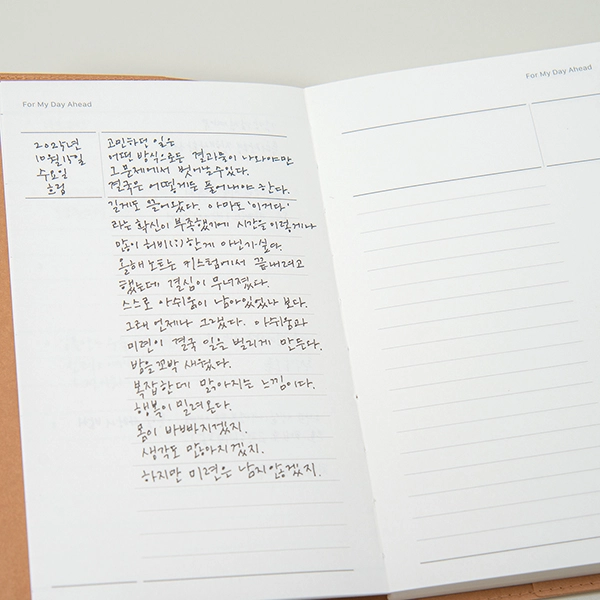 For My Day Ahead
2025년
10월 15일
수요일
흐림
고민하던 일은
어떤 방식으로든 결과물이 나와야만
그 문제에서 벗어날 수 있다.
결국은 어떻게든 풀어내야 한다.
길게도 끌어왔다. 아마도 '이거다'
라는 확신이 부족했기에 시간을 이렇게나
많이 허비(;;)한 게 아닌가 싶다.
올해 노트는 커스텀에서 끝내려고
했는데 결심이 무너졌다.
스스로 아쉬움이 남아있었나 보다.
그래 언제나 그랬다. 아쉬움과
미련이 결국 일을 벌리게 만든다.
밤을 꼬박 새웠다.
복잡한데 맑아지는 느낌이다.
행복이 밀려온다.
몸이 바빠지겠지.
생각도 많아지겠지.
하지만 미련은 남지 않겠지.
For My Day Ahead